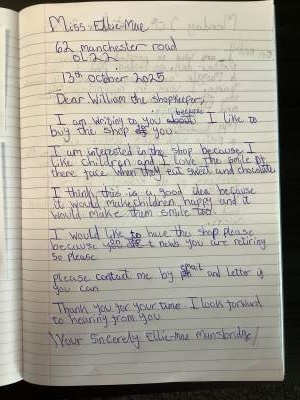 Miss. Ellie-Mae
62 manchester road
OL22
13th October 2025
Dear William the shopkeeper,
I am writing to you because I like to
buy the shop of you.
I am interested in the shop because I
like children and I love the smile of
there face when they eat sweet and chocolate
I think this is a good idea because
it would make children happy and it
would make them smile too.
I would like to have the shop please
because you are t news you are retiring
so please
please contact me by email and letter if
you can
Thank you for your time. I look forward
to hearing from you
Your Sincerely Ellie-Mae Mansbridge